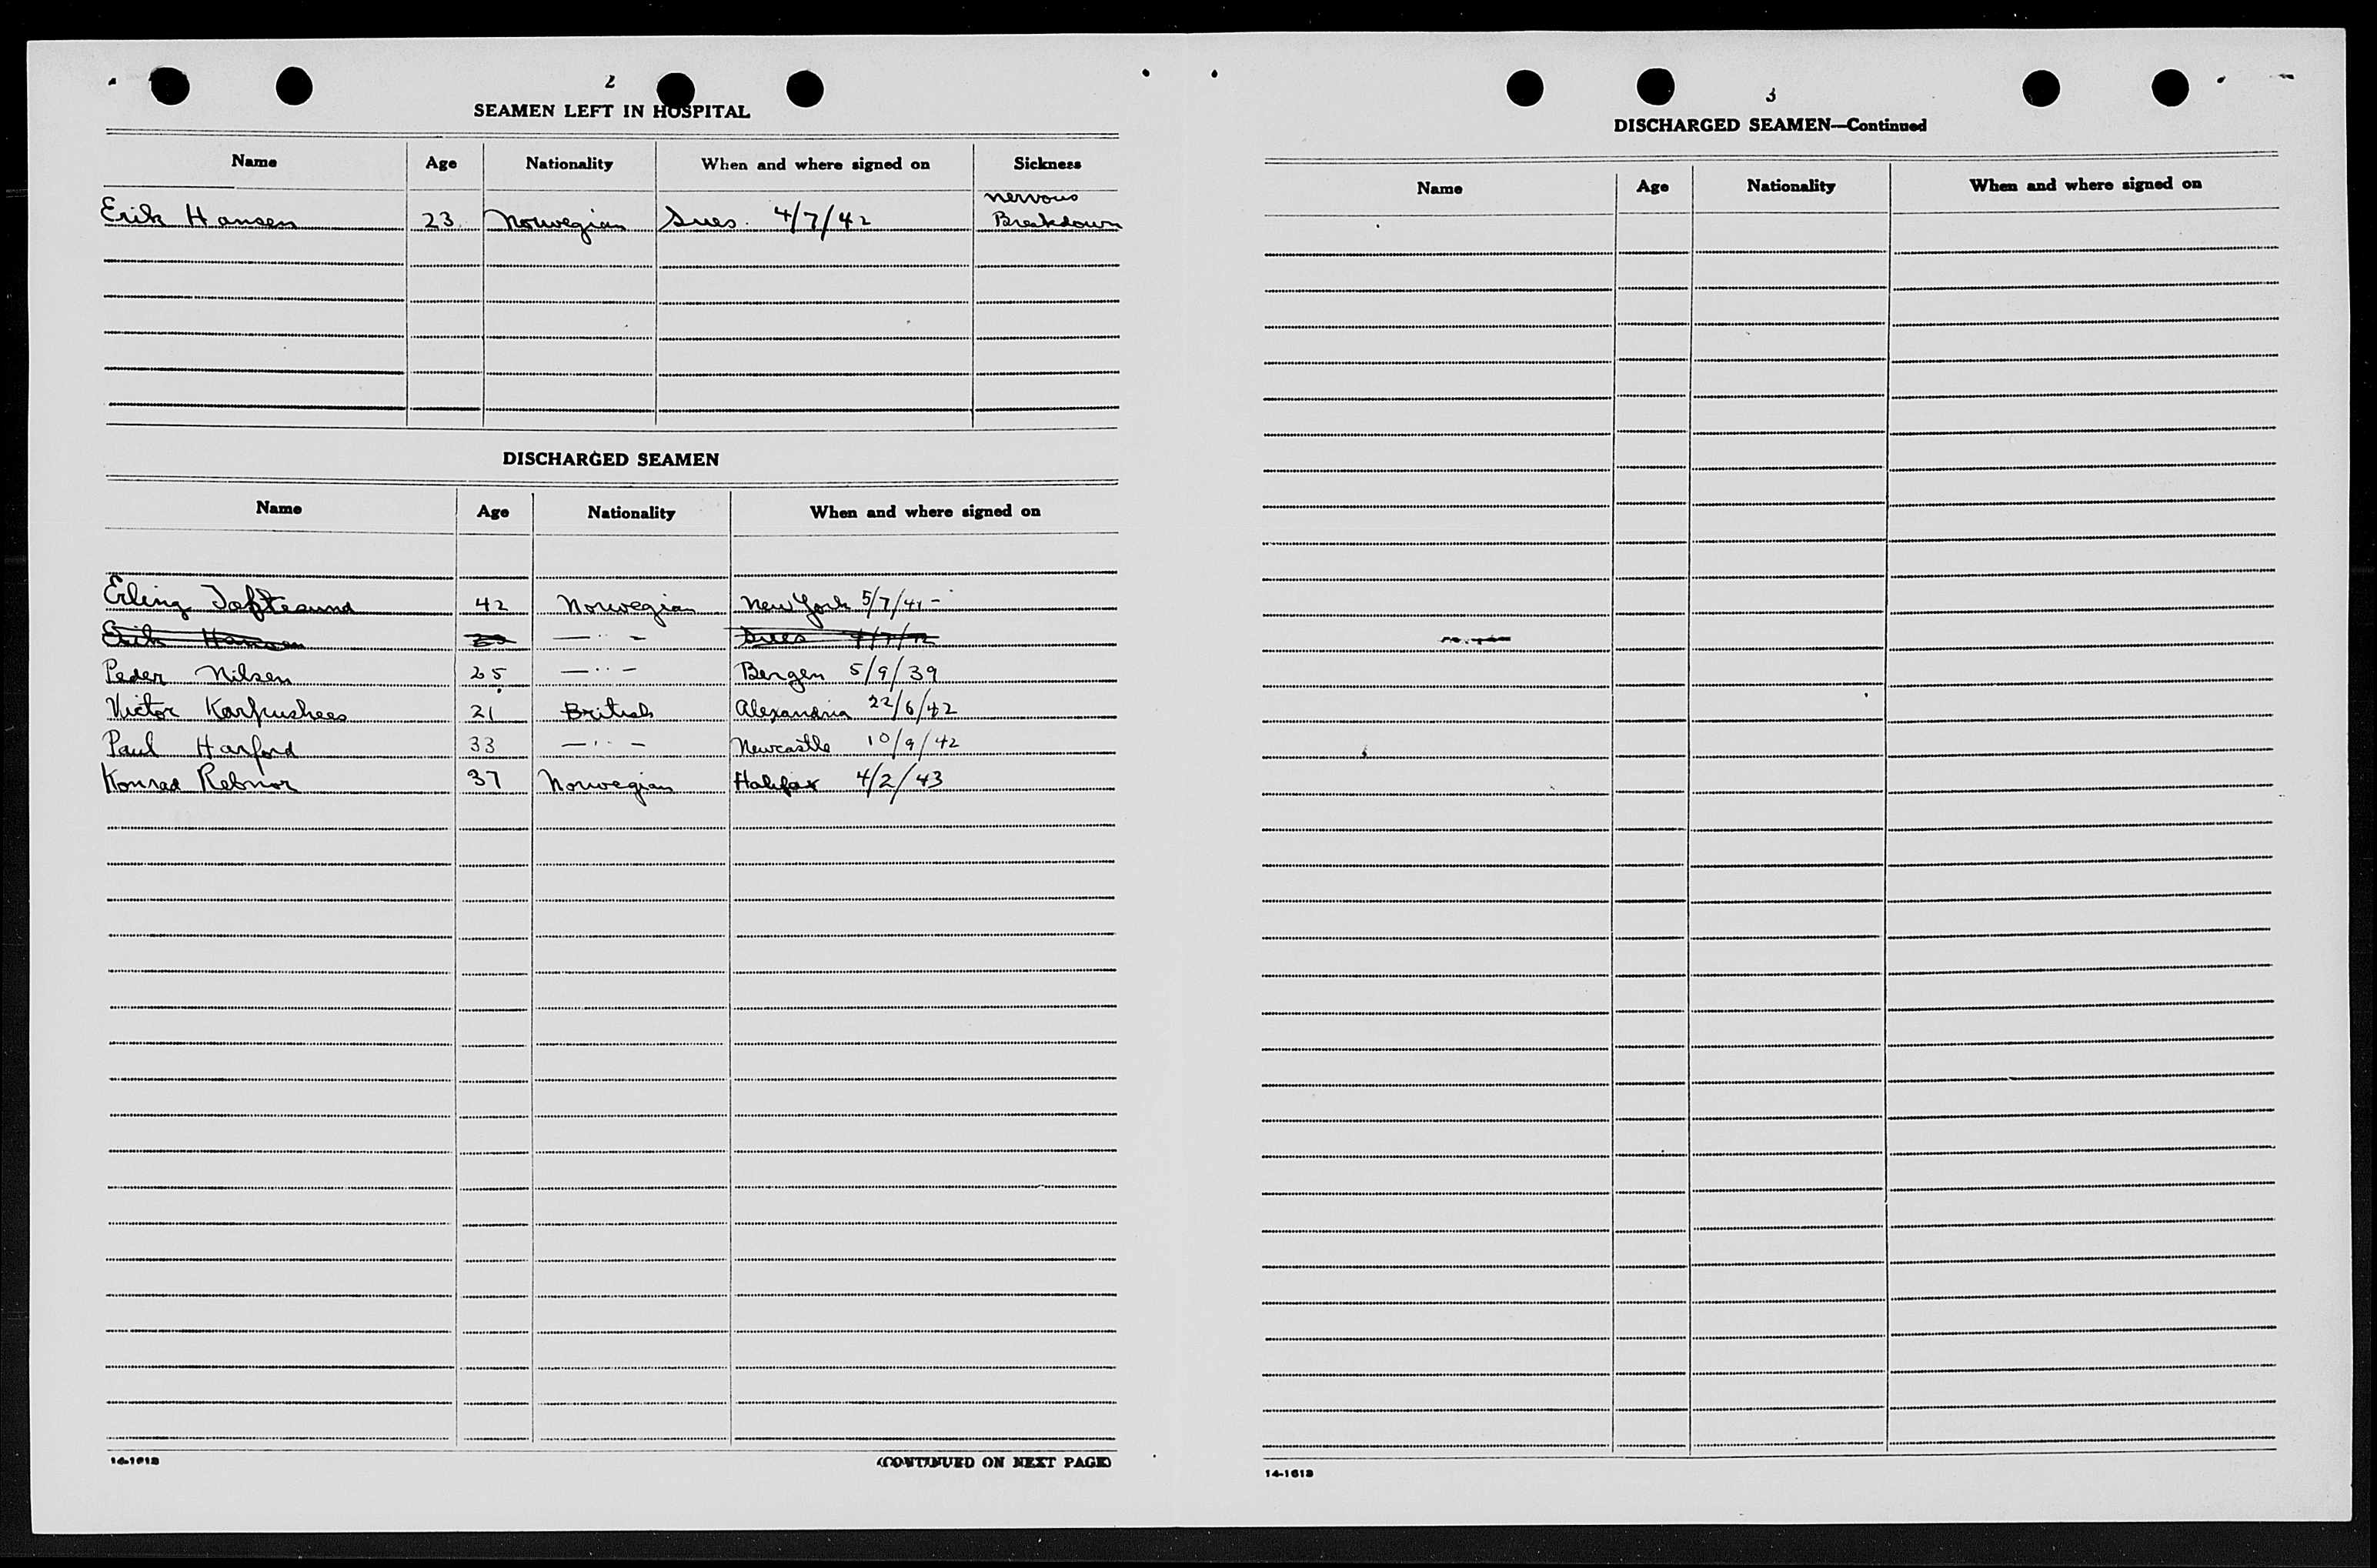 2
SEAMEN LEFT IN HOSPITAL
Name Age Nationality When and where signed on Sickness
Erik Hansen 23 Norwegian Sues. 4/7/42 nervous Breakdown
DISCHARGED SEAMEN
Name Age Nationality When and where signed on
Erling Toftesund 42 Norwegian New York 5/7/41 -
Erik Hansen 23 — ·· – Sues 4/7/42
Peder Nilsen 25 — ·· – Bergen 5/9/39
Victor Karfushees 21 British Alexandria 22/6/42
Paul Harford 33 — ·· – Newcastle 10/9/42
Konrad Rebnor 37 Norwegian Halifax 4/2/43
14-1613
(CONTINUED ON NEXT PAGE)
3
DISCHARGED SEAMEN—Continued
Name Age Nationality When and where signed on
14-1613